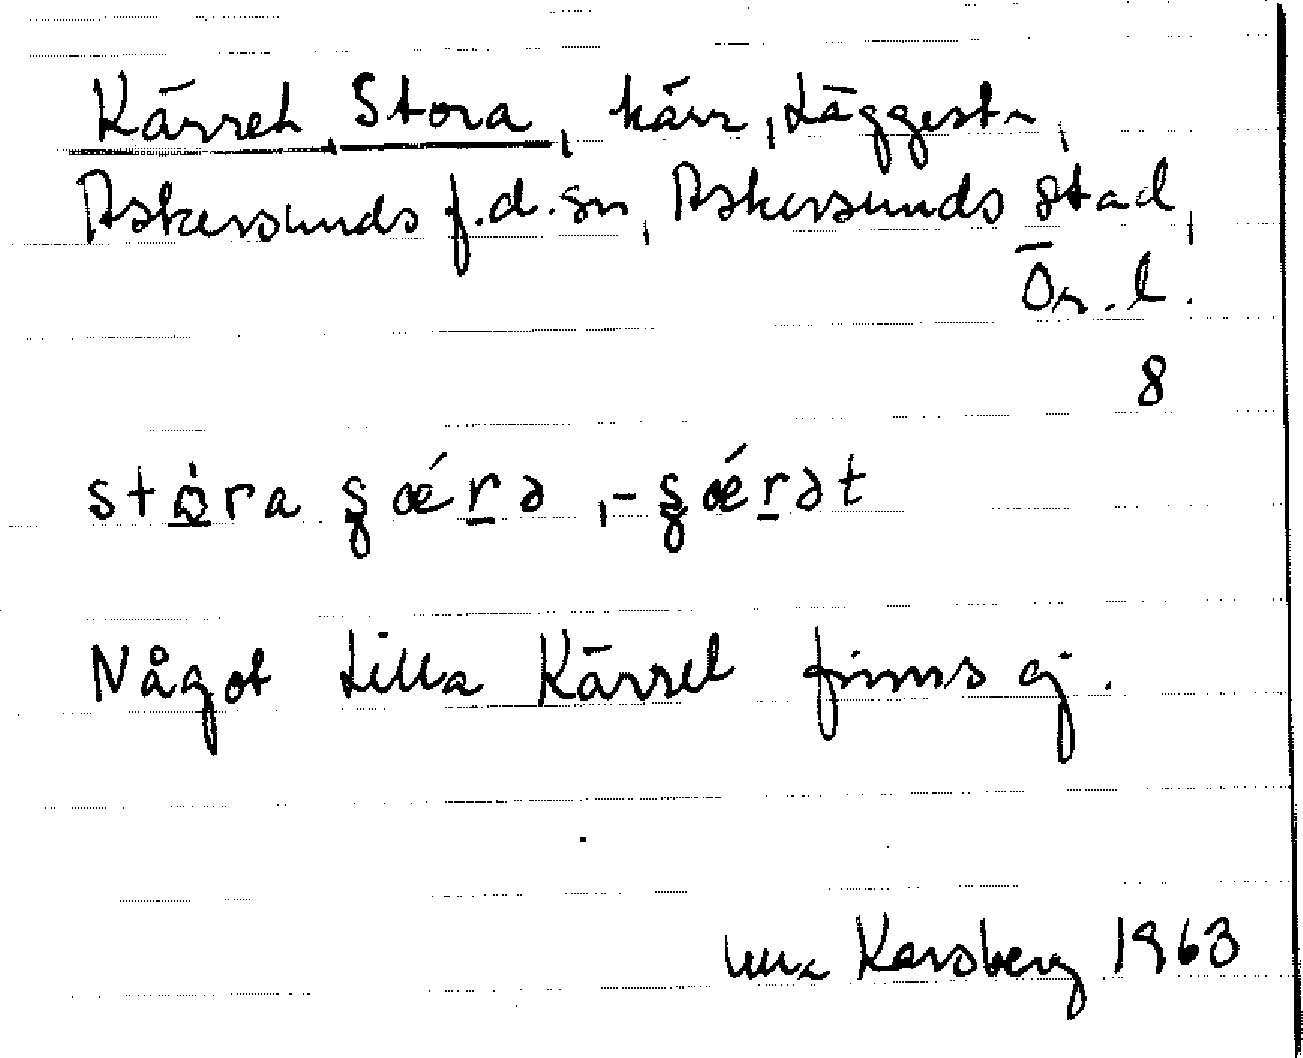 Kärret, Stora, kärr, Läggesta,
Askersunds f.d. sn, Askersunds stad,
Ör. l.
8
stọ̀ra ʂǽrə, -ʂǽrət
Något Lilla Kärret finns ej.
Karsberg 1963